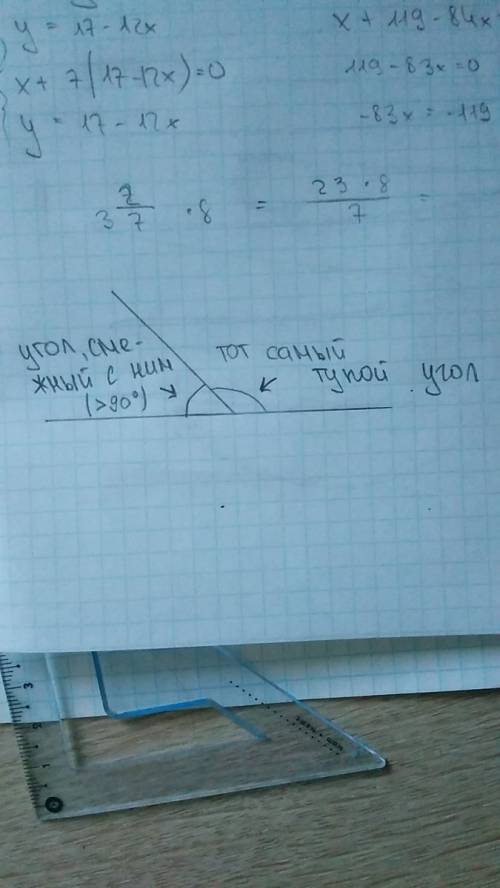 y = 17 - 12x
x + 7(17 - 12x) = 0
y = 17 - 12x
x + 119 - 84x
119 - 83x = 0
-83x = -119
3 2/7 · 8 = 23 · 8 / 7 =
угол, сме-
жный с ним
(>90°)
тот самый
тупой угол
0 1 2 3